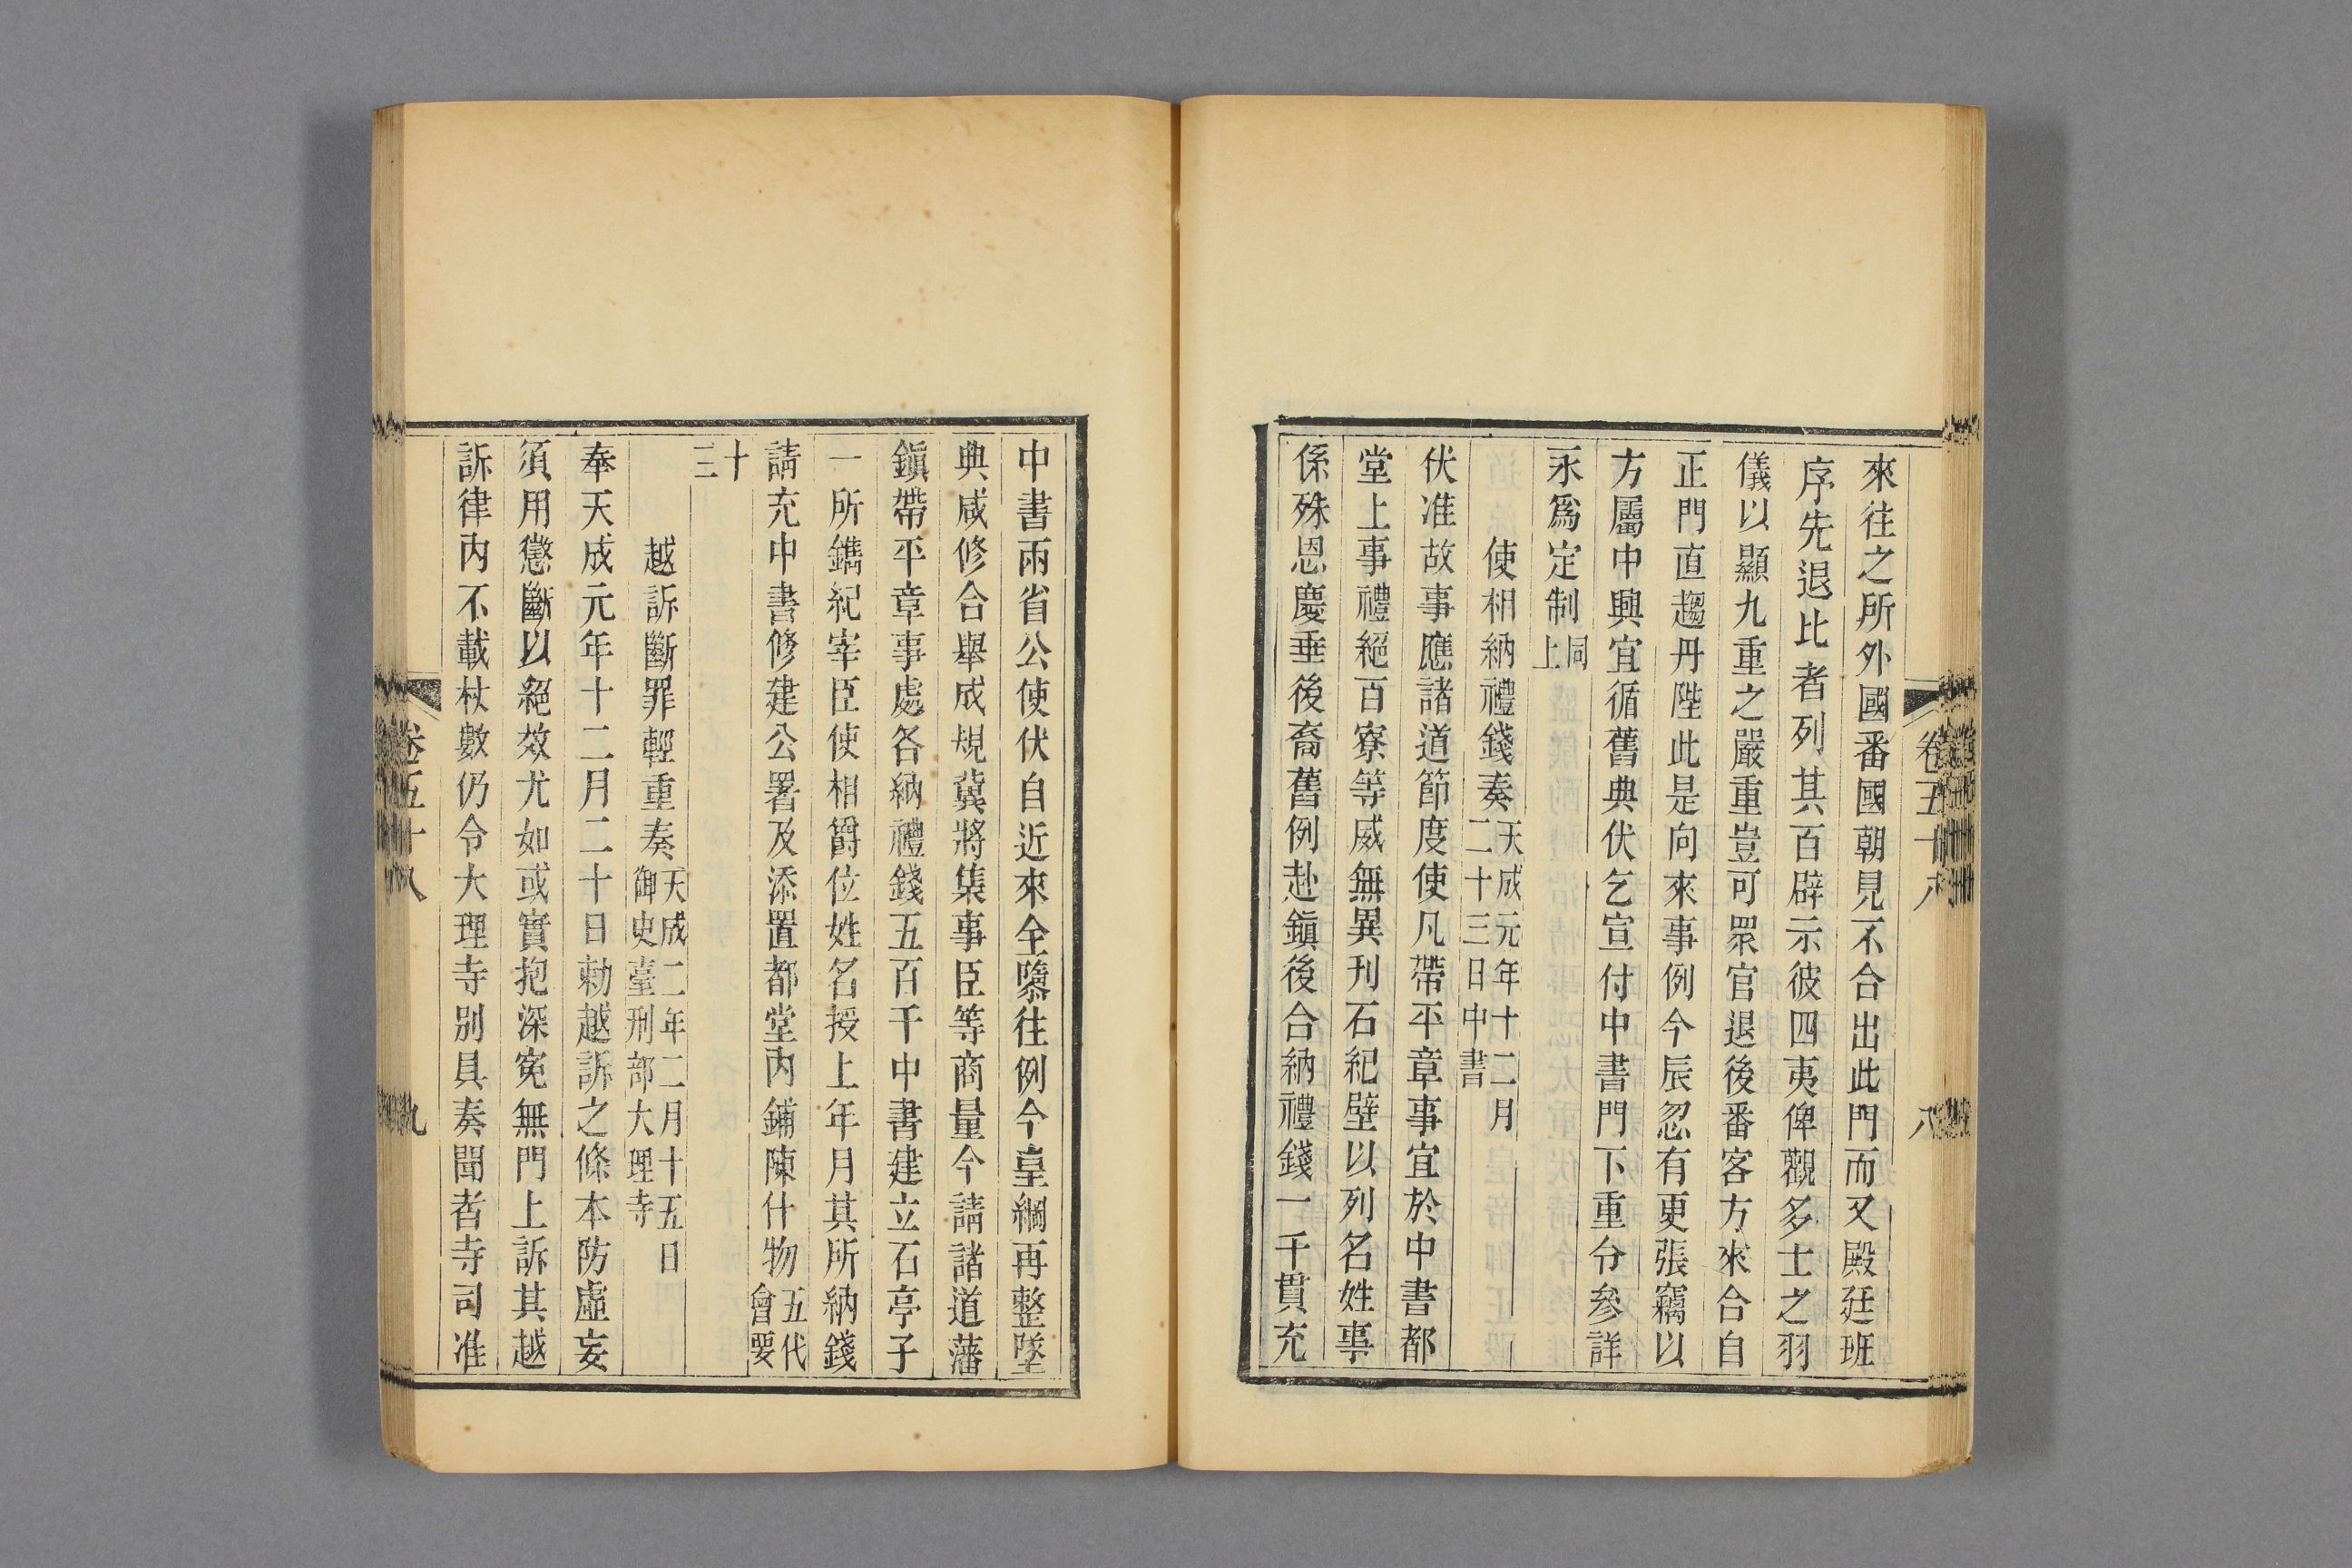 來往之所外國番國朝見不合出此門而又殿廷班
序先退比者列其百辟示彼四夷俾觀多士之羽
儀以顯九重之嚴重豈可眾官退後番客方來合自
正門直趨丹陛此是向來事例今辰忽有更張竊以
方屬中興宜循舊典伏乞宣付中書門下重分參詳
永爲定制同上
使相納禮錢奏天成元年十二月二十三日中書
伏准故事應諸道節度使凡帶平章事宜於中書都
堂上事禮絕百寮等威無異刊石紀壁以列名姓事
係殊恩慶垂後裔舊例赴鎮後合納禮錢一千貫充
卷五十八
八
中書兩省公使伏自近來全隳往例今皇綱再整墜
典咸修合舉成規冀將集事臣等商量今請諸道藩
鎮帶平章事處各納禮錢五百千中書建立石亭子
一所鐫紀宰臣使相爵位姓名授上年月其所納錢
請充中書修建公署及添置都堂內鋪陳什物五代會要
十三
越訴斷罪輕重奏天成二年二月十五日御史臺刑部大理寺
奉天成元年十二月二十日勅越訴之條本防虛妄
須用懲斷以絕效尤如或實抱深寃無門上訴其越
訴律內不載杖數仍令大理寺別具奏聞者寺司准
卷五十八
九